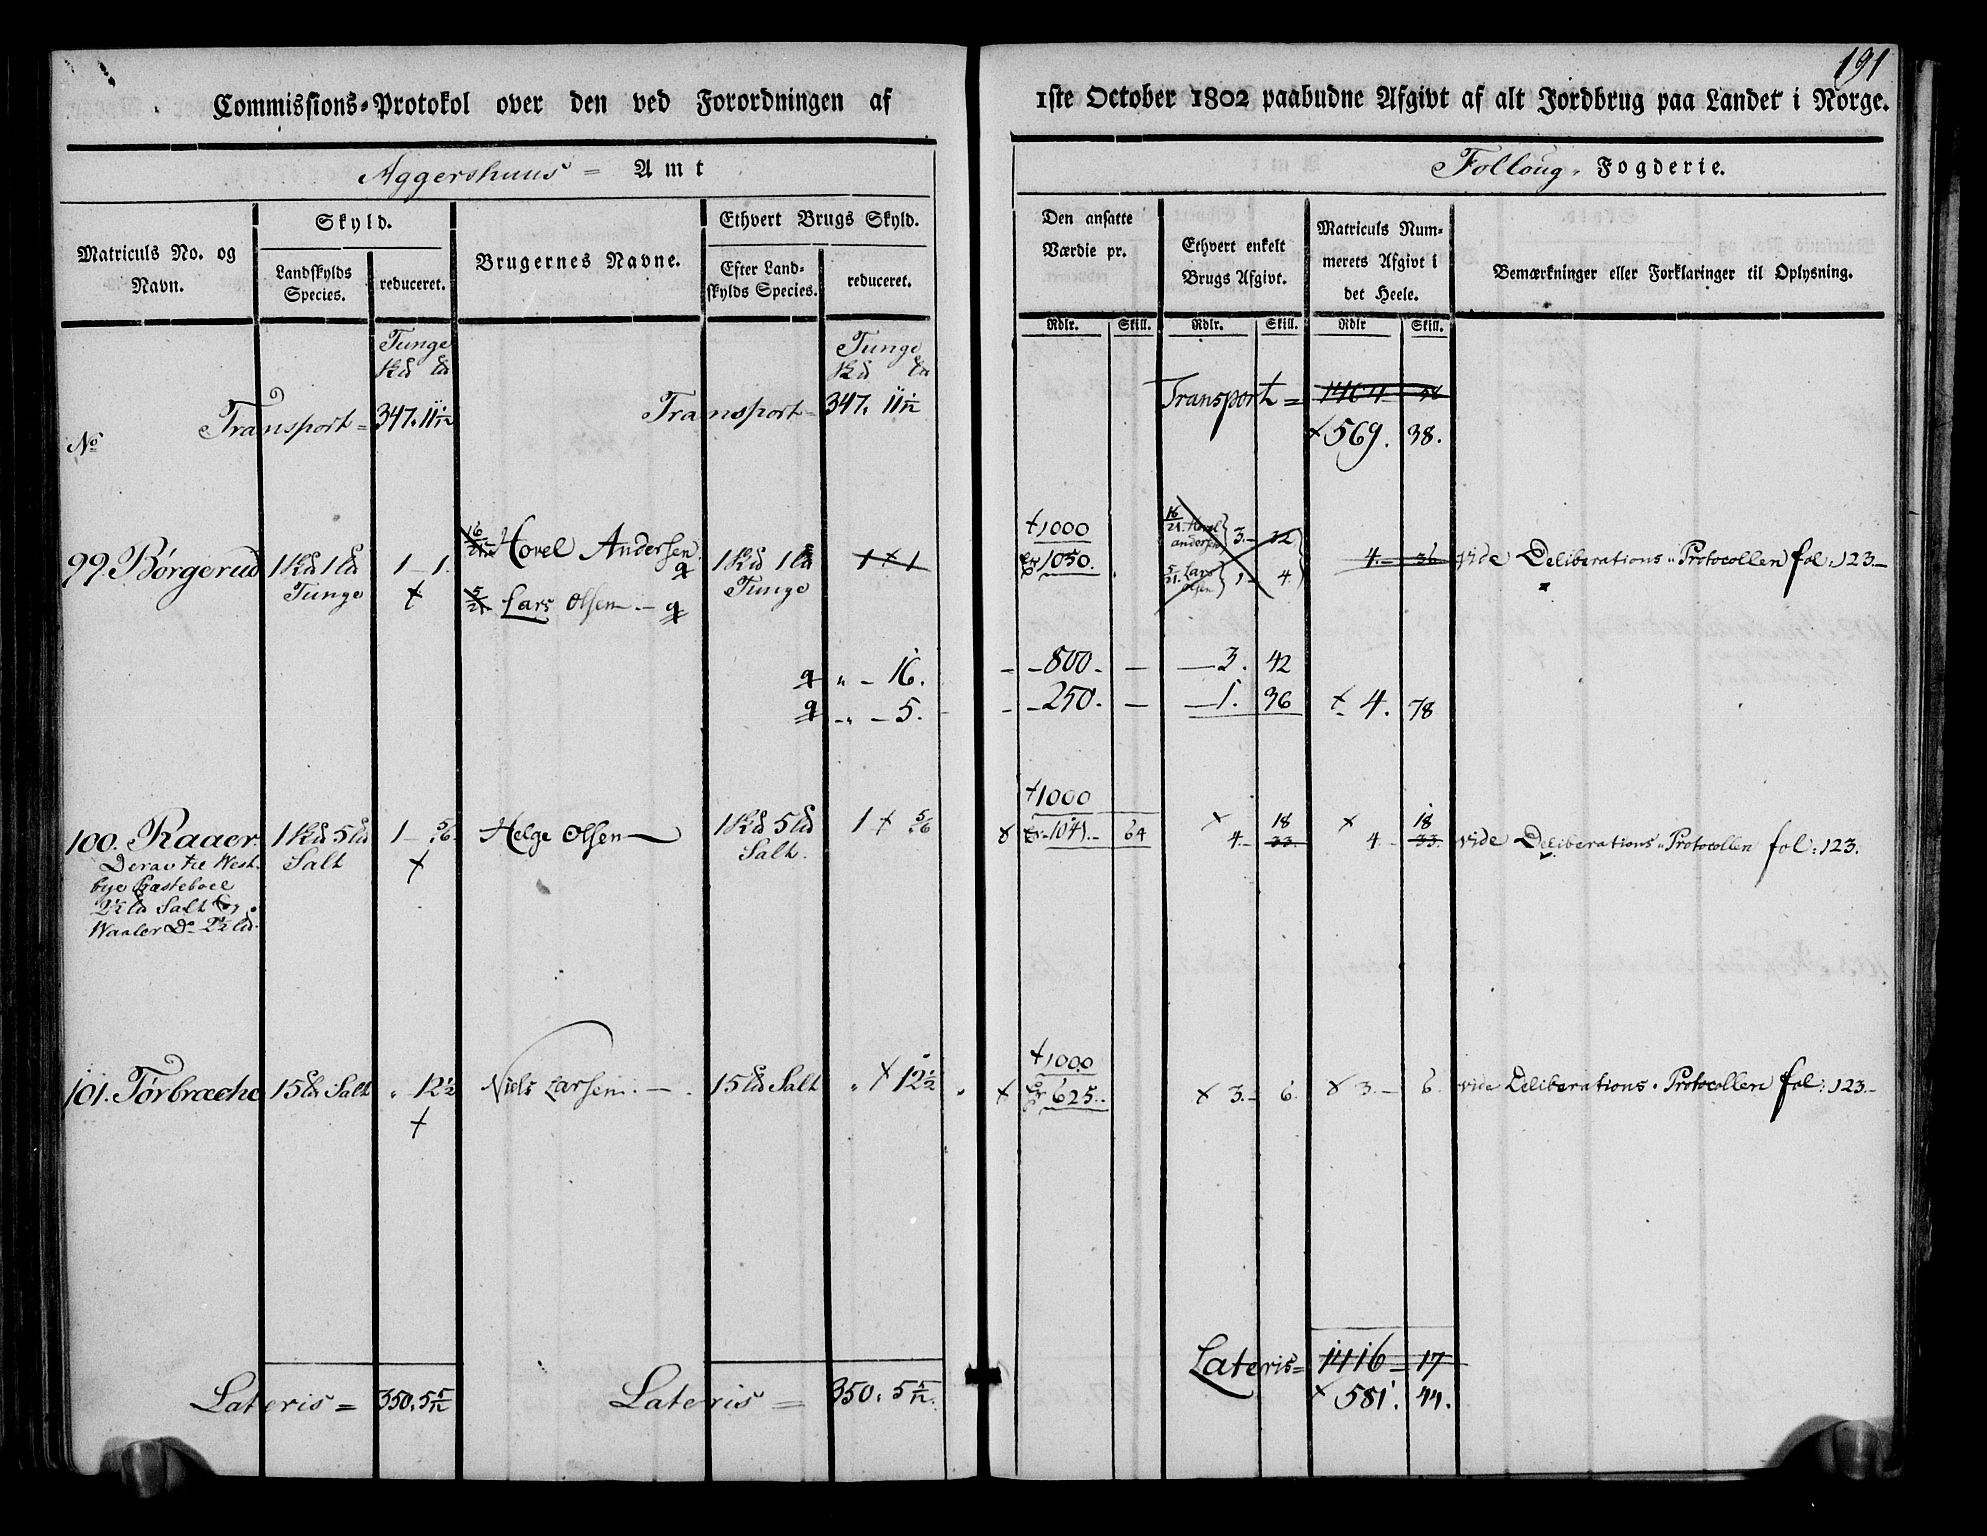 191
Commissions-Protokol over den ved Forordningen af
1ste October 1802 paabudne Afgivt af alt Jordbrug paa Landet i Norge.
Aggershuus = Amt
Folloug- Fogderie.
Matriculs No. og Navn.
Skyld.
Landskylds Species.
reduceret.
Brugernes Navne.
Ethvert Brugs Skyld.
Efter Landskylds Species.
reduceret.
Den ansatte Værdie pr.
Ethvert enkelt Brugs Afgivt.
Matriculs Nummerets Afgivt i det Heele.
Bemærkninger eller Forklaringer til Oplysning.
Rdlr. Skill. Rdlr. Skill. Rdlr Skill.
Tunge Tunge
Transport = 347. 11 1/12 Transport = 347. 11 1/12 Transport =
× 569. 38.
No
99. Børgerud 1 1 1 — 1. 16/21 Hovel Andersen. 1 1 1 × 1 + 1000
Tunge + 5/21 Lars Olsen — Tunge 1050. 16/21. Hovel Andersen 3. — 32 4. — 36 vide Deliberations Protocollen fol: 123.—
5/21. Lars Olsen 1 — 4
„ — 16. — 800. — — 3. 42
„ — 5. — 250. — — 1. 36 + 4. 78
+ 1000
100. Raaer. 1 5 1 — 5/6. Helge Olsen — 1 5 1 + 5/6 × 1041. — 64 × 4. — 18 33. × 4 18 33. vide Deliberations Protocollen fol: 123.
Salt + Salt.
Derav til Westbye Præsteboel
2½ Salt og
Waaler Do 2½
+ 1000
101. Tørbræche 15 Salt „ 12½ Niels Larsen. — 15 Salt „ + 12½ × 625.. × 3. — 6. × 3. — 6. vide Deliberations Protocollen fol: 123.—
+
Lateris = 350. 5 5/12 Lateris = 350. 5 5/12. Lateris = 1416 — 17
× 581. 44.